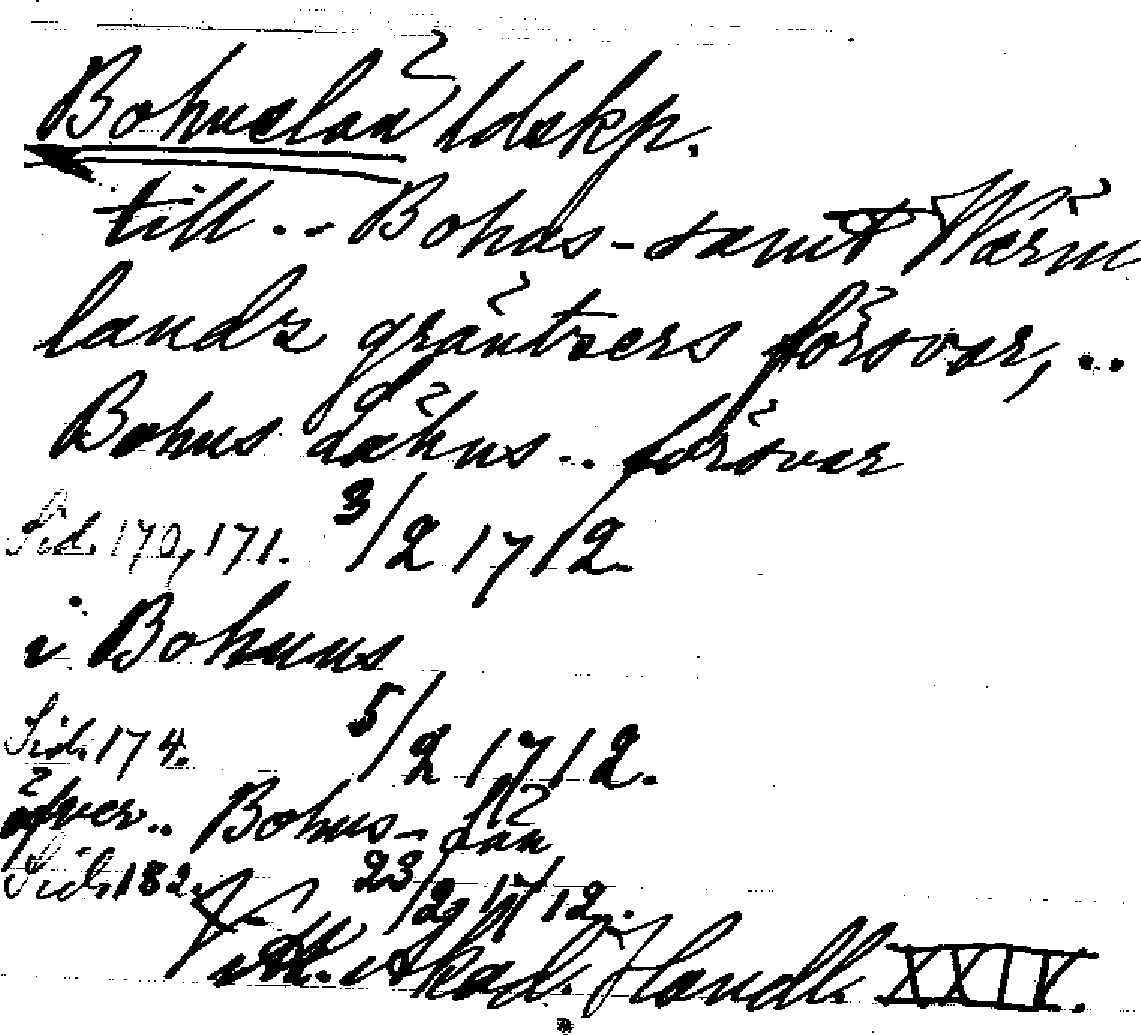 Bohuslän ldskp.
till .. Bohus-samt Wärm
landz gräntzers försvar, ..
Bohus Lähns .. försvar
Sid. 170, 171. 3/2 1712.
i Bohuus
Sid. 174. 5/2 1712.
öfver .. Bohus-län
Sid. 182. 23/2 1712.
Vitt. Akad. Handl. XXIV.